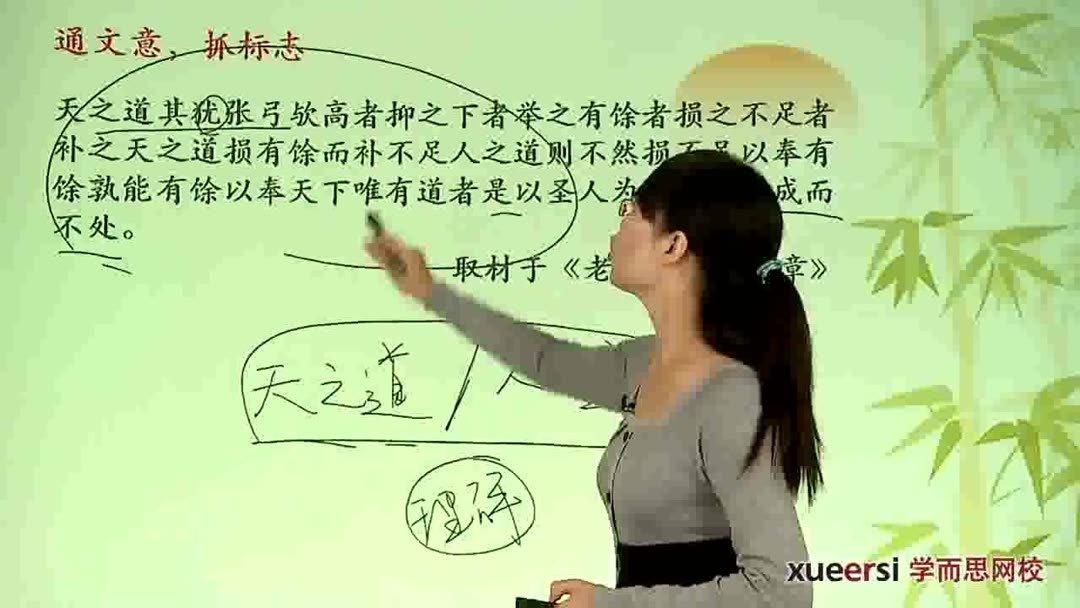 通文意，抓标志
天之道其犹张弓欤高者抑之下者举之有馀者损之不足者
补之天之道损有馀而补不足人之道则不然损不足以奉有
馀孰能有馀以奉天下唯有道者是以圣人为 成而
不处。
取材于《老 章》
天之道/人
理解
xueersi 学而思网校